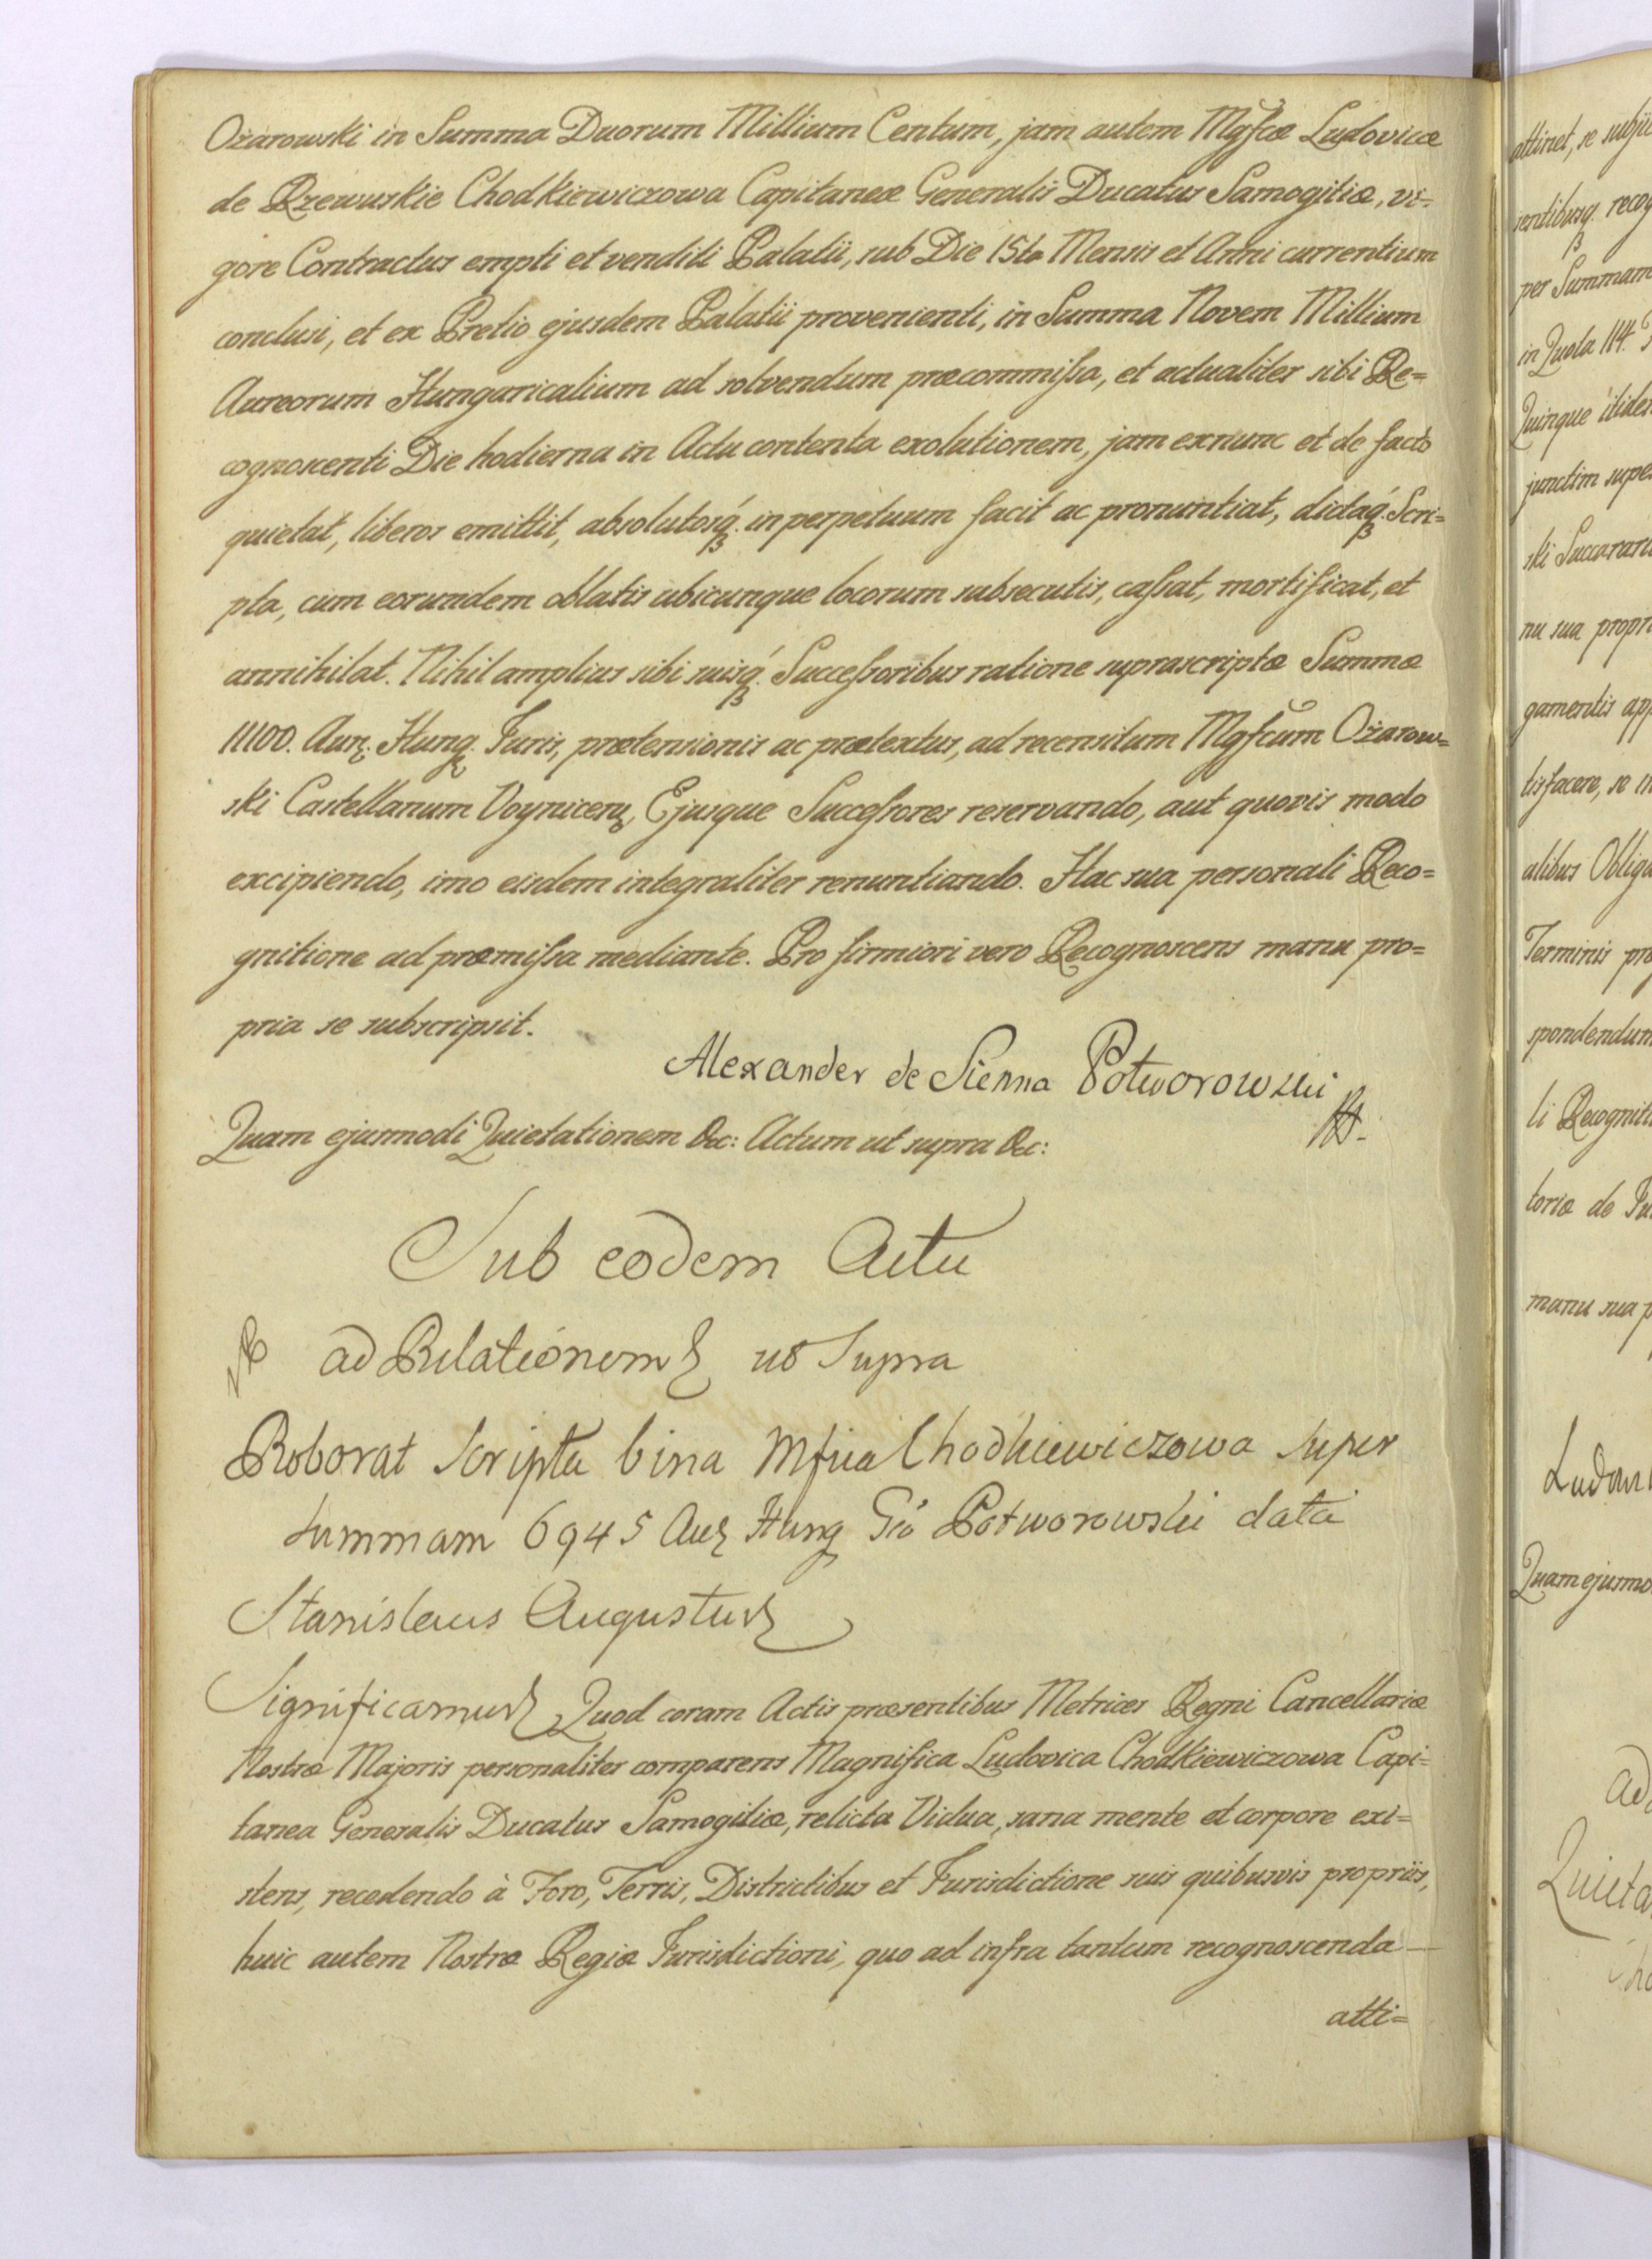 Ożarowski in Summa Duorum Millium Centum, jam autem Mgfcæ Ludovicæ
de Rzewuskie Chodkiewiczowa Capitaneæ Generalis Ducatus Samogitiæ, vi=
gore Contractus empti et venditi Palatii, sub Die 15ta Mensis et Anni currentium
conclusi, et ex Pretio ejusdem Palatii provenienti, in Summa Novem Millium
Aureorum Hungaricalium ad solvendum præcommissa, et actualiter sibi Re=
cognoscenti Die hodierna in Actu contenta exolutionem, jam exnunc et de facto
quietat, liberos emittit, absolutosq́. in perpetuum facit ac pronuntiat, dictaq́. Scri=
pta, cum eorundem oblatis ubicunque locorum subsecutis, cassat, mortificat, et
annihilat. Nihil amplius sibi suisq́. Successoribus ratione suprascriptæ Summæ
11100. Aur. Hung. Juris, prætensionis ac prætextus, ad recensitum Mgfcum Ożarow=
ski Castellanum Voynicen, Ejusque Successores reservando, aut quovis modo
excipiendo, imo eisdem integraliter renuntiando. Hac sua personali Reco=
gnitione ad præmissa mediante. Pro firmiori vero Recognoscens manu pro=
pria se subscripsit.
Alexander de Sienna Potworowski
Quam ejusmodi Quietationem &c: Actum ut supra &c:
Sub eodem Actu
ad Relationem ut Supra
Roborat Scripta bina Mfica Chodkiewiczowa super
summam 6945 Aur Hung Gó Potworowski data
Stanislaus Augustus
Significamus Quod coram Actis præsentibus Metrices Regni Cancellariæ
Nostræ Majoris personaliter comparens Magnifica Ludovica Chodkiewiczowa Capi=
tanea Generalis Ducatus Samogitiæ, relicta Vidua, sana mente et corpore exi=
stens, recedendo à Foro, Terris, Districtibus et Jurisdictione suis quibusvis propriis,
huic autem Nostræ Regiæ Jurisdictioni, quo ad infra tantum recognoscenda
atti=
attinet, se
recog
per Summam
in Quota 114.
Quinque
junctim
ski
nu sua
gamentis
tisfacere, se
alibus
Terminis
li
toriæ de
manu sua
Quam
ad